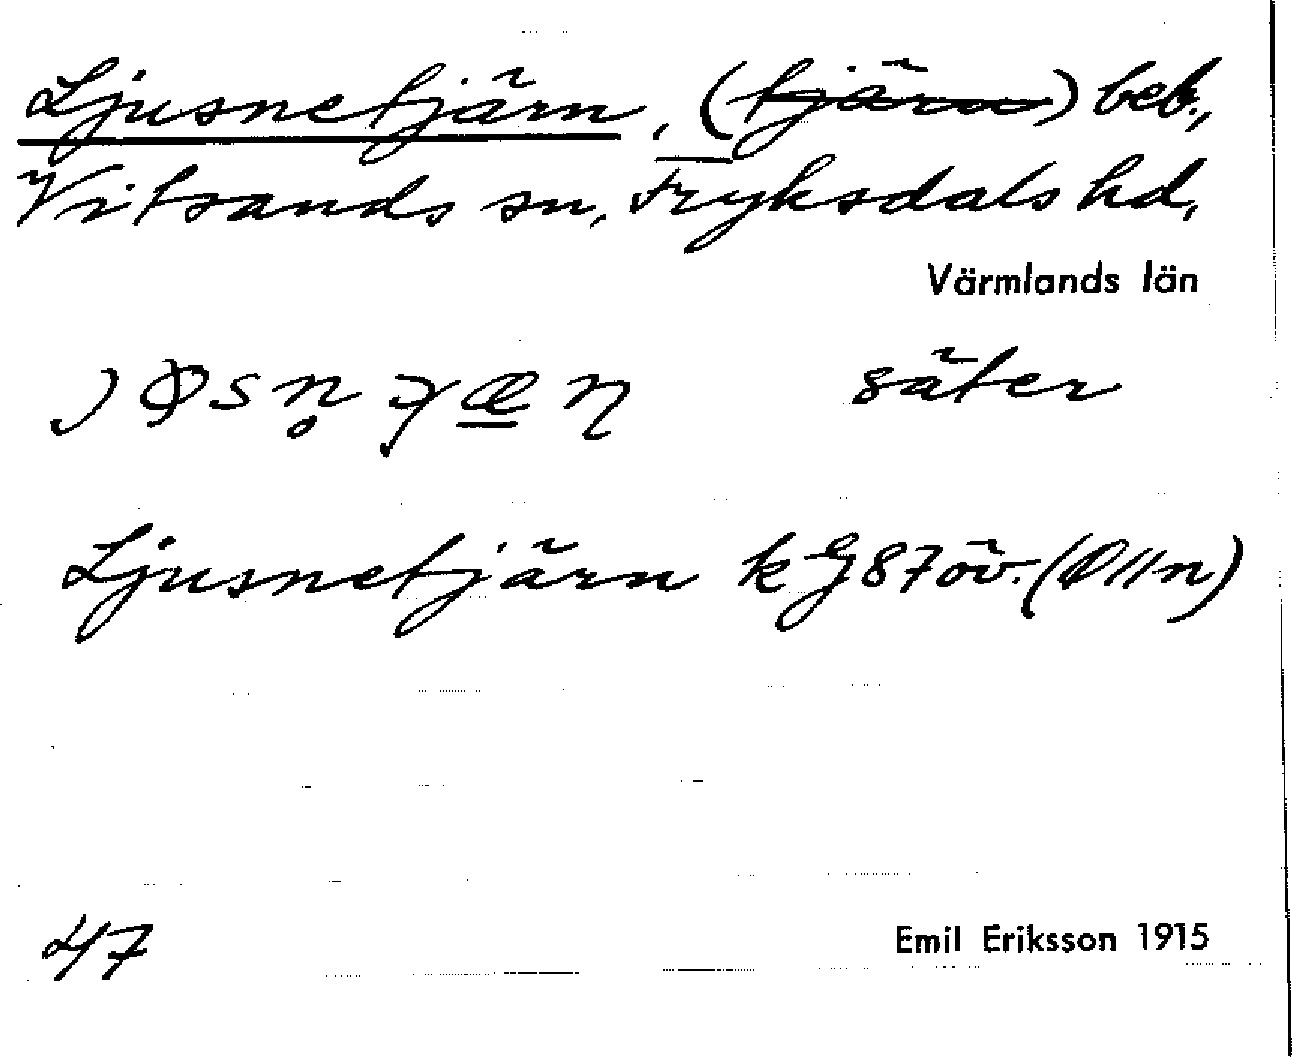 Ljusnetjärn, (tjärn) beb.,
Vitsands sn, Fryksdals hd,
Värmlands län
säter
Ljusnetjärn k G 87 öv. (Ø II n)
47
Emil Eriksson 1915